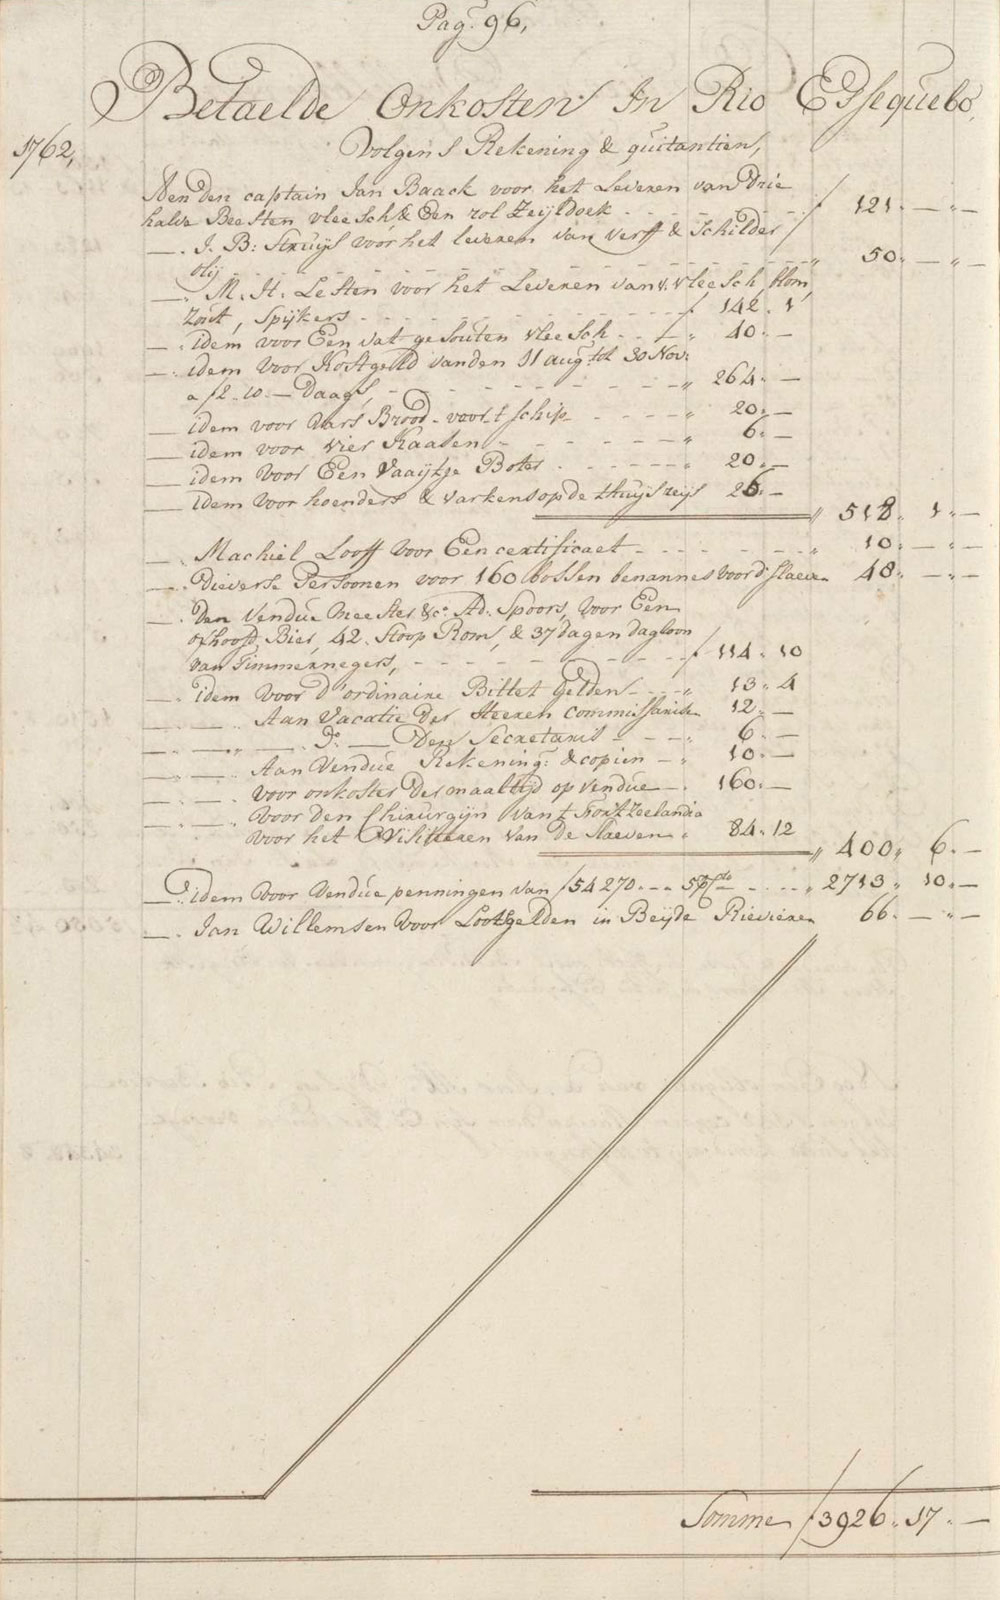 Pag. 96,
Betaelde Onkosten In Rio Essequebo,
1762, Volgens Rekening & quitantien,
Aen den captain Jan Baack voor het Leveren van Drie
halve Beesten vleesch, & Een rol Zeijldoek - - - ƒ 121 „ — „ —
—„ J. B: Struijs voor het leveren van verff & Schilder
olij - - - „ 50 „ — „ —
—„ M. H. Lesten voor het Leveren van v. vleesch, Rom,
Zout, Spijkers - - - ƒ 142 „ 1
—„ idem voor Een vat gesouten vleesch - - „ 40 „ —
—„ idem voor Kostgeld van den 11 aug: tot 30 Nov:
a ƒ2„10„— Daags, - - - „ 264 „ —
—„ idem voor Vars Brood voor 't schip - - - „ 20 „ —
—„ idem voor vier Kaasen - - - „ 6 „ —
—„ idem voor Een Vaaijtge Boter - - - „ 20 „ —
—„ idem voor hoenders & varkens op de thuijs reijs 26 „ —
„ 518 „ 1 „ —
—„ Machiel Looff voor Een certificaet - - - „ 10 „ — „ —
—„ Dieverse Persoonen voor 160 bossen benannes voor d' slaeven 48 „ — „ —
—„ Den Vendue Meester &c: Ad: Spoors, voor Een
oxhooft Bier, 42 Stoop Rom, & 37 dagen dagloon
van Timmernegers, - - - ƒ 114 „ 10
—„ idem voor d'ordinaire Billet Gelden - - „ 13 „ 4
—„ — Aan Vacatie der Heeren commissarisen 12 „ —
—„ —„ — Do. — Den Secretaris - - - „ 6 „ —
—„ — Aan Vendue Rekening: & copien — „ 10 „ —
—„ —„ voor onkosten der maaltijd op vendue — „ 160 „ —
—„ —„ voor den Chirurgijn van 't Fort Zeelandia
voor het Visiteeren van de Slaeven „ 84 „ 12
„ 400 „ 6 „ —
—„ idem voor Vendue penningen van ƒ54270 „ — „ 5 pCto - - - „ 2713 „ 10 „ —
—„ Jan Willemsen voor Lootsgelden in Beijde Rievieren 66 „ — „ —
Somme ƒ 3926 „ 17 „ —